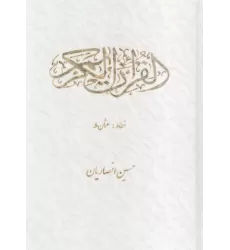 القرآن الکریم
خط : عثمان طه
حسین انصاریان